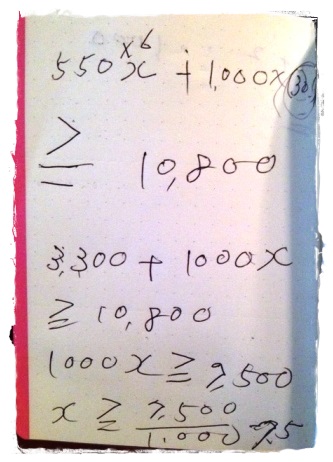 550x×6 + 1,000x
≧ 10,800
3,300 + 1000x
≧ 10,800
1000x ≧ 7,500
x ≧ 7,500/1,000 7.5